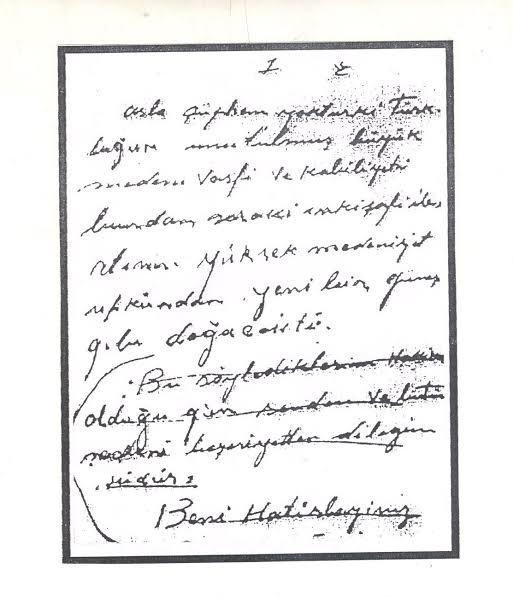 asla şüphem yoktur ki Türk-
lüğün unutulmuş büyük
medenî vasfı ve kabiliyeti
bundan sonraki inkişafı ile
atinin yüksek medeniyet
ufkundan yeni bir güneş
gibi doğacaktır.
Bu söylediklerim hakikat
olduğu gün senden ve bütün
medenî beşeriyetten dileğim
şudur:
Beni Hatırlayınız